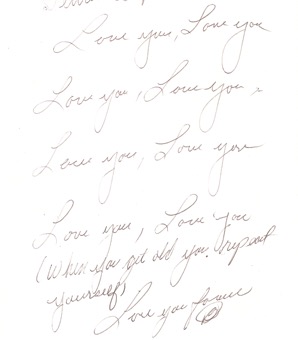 Love you, Love you
Love you, Love you,
Love you, Love you
Love you, Love you
(When you get old you repeat
yourself)
Love you forever